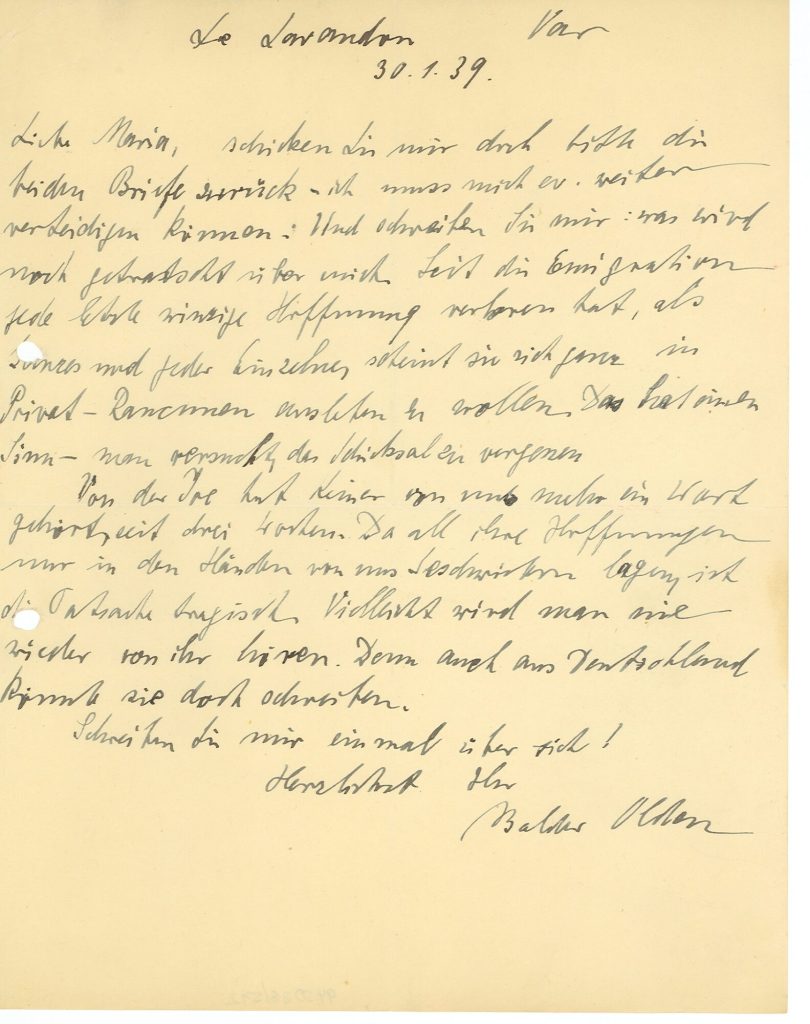 Le Lavandou Var
30.1.39.
Liebe Maria, schicken Sie mir doch bitte die
beiden Briefe zurück - ich muss mich ev. weiter
verteidigen können: Und schreiben Sie mir: was wird
noch getratscht über mich. Seit die Emigration
jede letzte winzige Hoffnung verloren hat, als
Ganzes und jeder Einzelne, scheint sie sich ganz in
Privat-Rancunen ausleben zu wollen. Das hat einen
Sinn - man versucht, das Schicksal zu vergessen
Von der Ire hat keiner von uns mehr ein Wort
gehört, seit drei Wochen. Da all ihre Hoffnungen
nur in den Händen von uns Geschwistern lagen, ist
die Tatsache tragisch. Vielleicht wird man nie
wieder von ihr hören. Denn auch aus Deutschland
könnte sie doch schreiben.
Schreiben Sie mir einmal über sich!
Herzlichst Ihr
Balder Olden